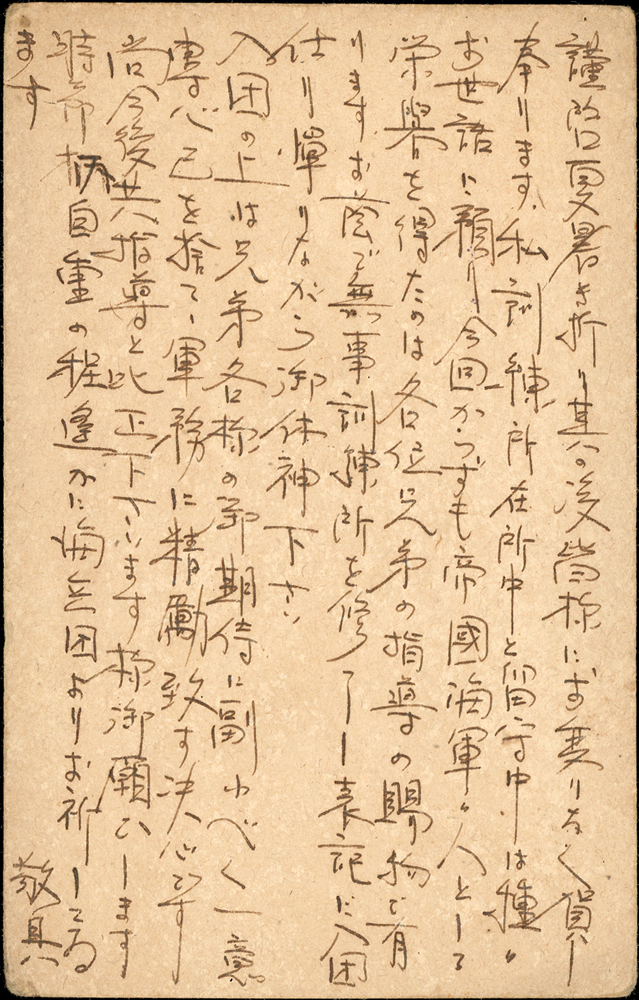 謹啓夏暑き折り其の後皆様にお変りなく賀し
奉ります、私訓練所在所中と留守中は種々
お世話に預り今回からずも帝國海軍々人として
栄譽を得たのは各位兄弟の指導の賜物で有
ります お蔭で無事訓練所を修了し表記に入団
仕り憚りながら御休神下さい
入団の上は兄弟各様の御期待に副ふべく一意
専心己を捨て軍務に精励致す決心です
尚今後共指導と叱正下さいます様御願ひします
時節柄自重の程遥かに海兵団よりお祈してゐ
ます 敬具